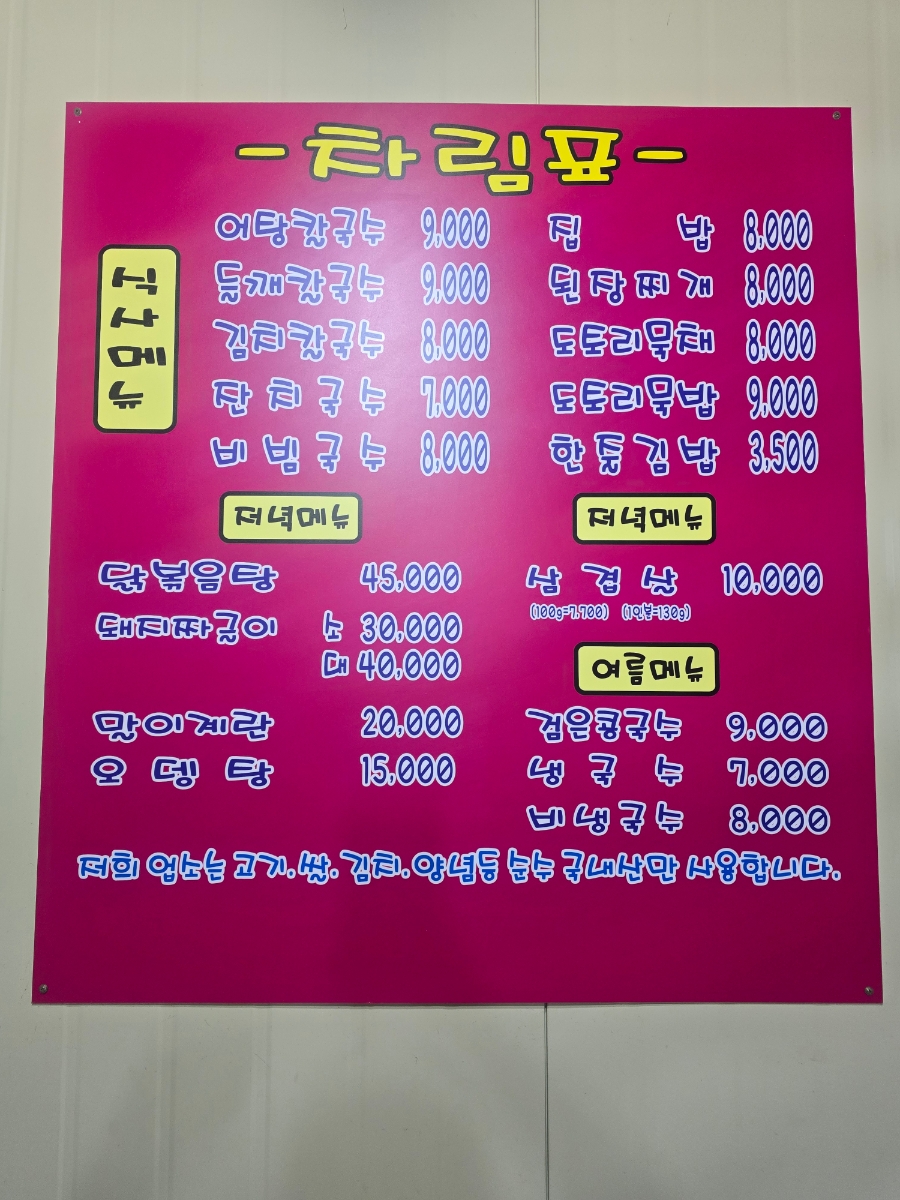 -차림표-
식사메뉴
어탕칼국수 9,000
들깨칼국수 9,000
김치칼국수 8,000
잔치국수 7,000
비빔국수 8,000
집밥 8,000
된장찌개 8,000
도토리묵채 8,000
도토리묵밥 9,000
한줄김밥 3,500
저녁메뉴
닭볶음탕 45,000
돼지짜글이 소 30,000
대 40,000
말이계란 20,000
오뎅탕 15,000
저녁메뉴
삼겹살 10,000
(100g=7,700) (1인분=130g)
여름메뉴
검은콩국수 9,000
냉국수 7,000
비냉국수 8,000
저희 업소는 고기.쌀.김치.양념등 순수 국내산만 사용합니다.